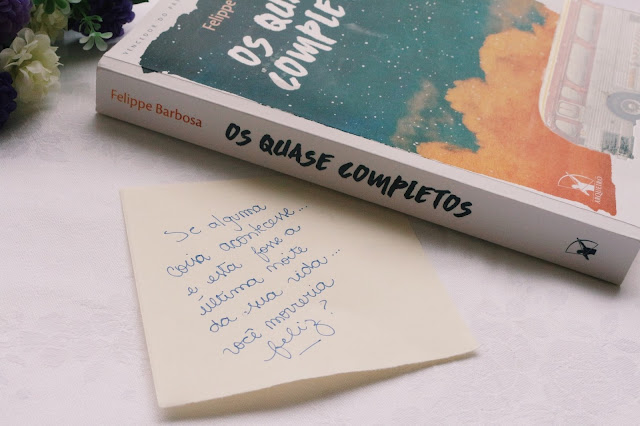 Felippe
OS QUA
COMPLE
Felippe Barbosa
OS QUASE COMPLETOS
ARQUEIRO
Se alguma
coisa acontecesse...
e esta fosse a
última noite
da sua vida...
você morreria
feliz?